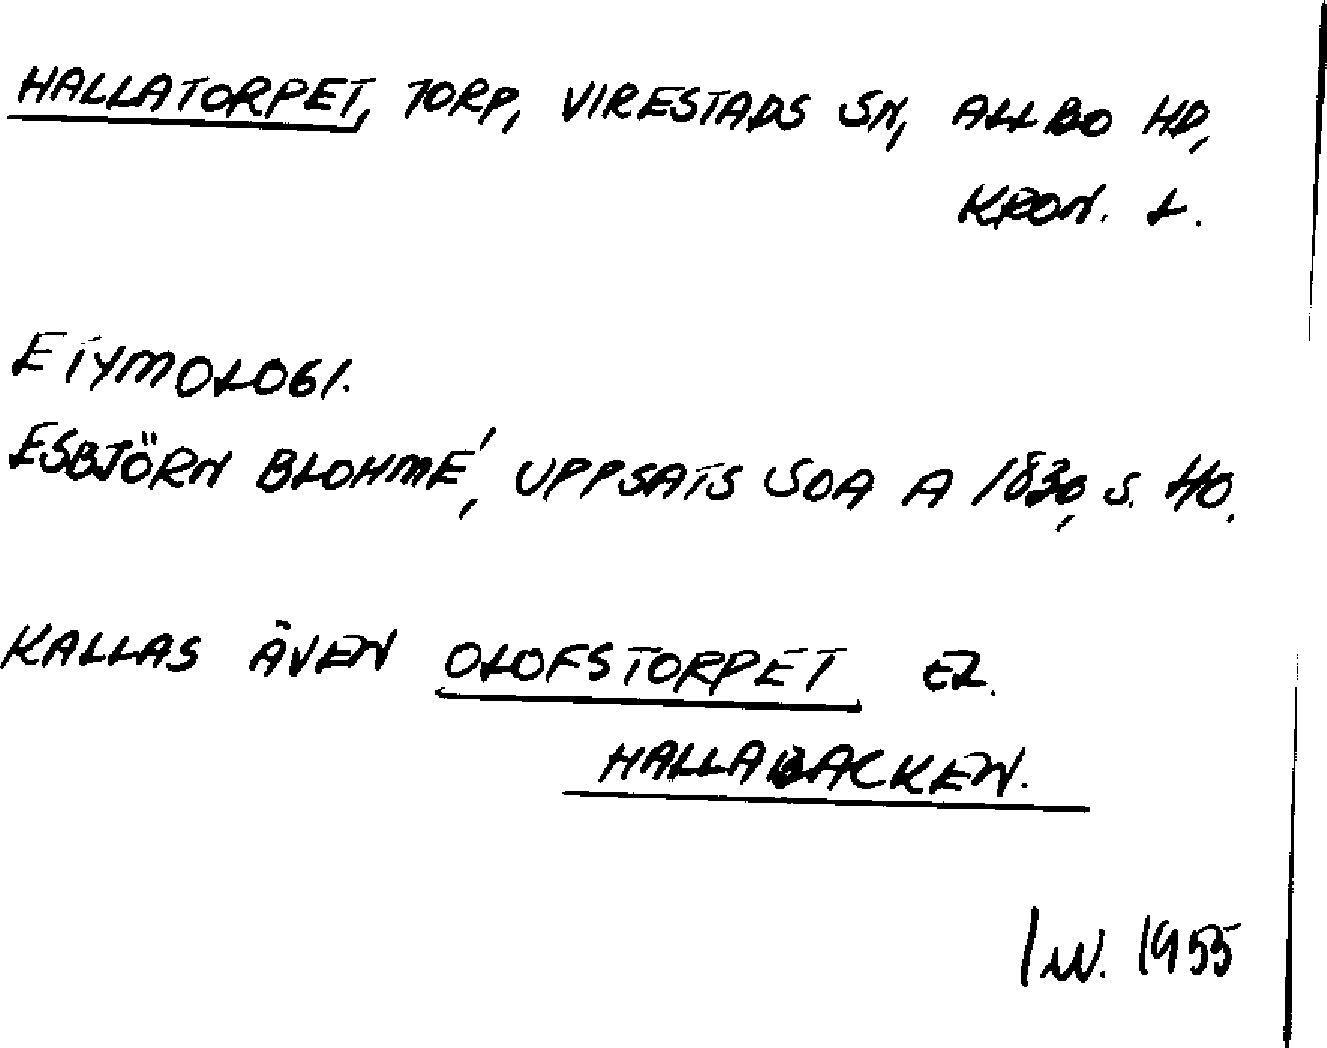 HALLATORPET, TORP, VIRESTADS SN, ALLBO HD,
KRON. L.
ETYMOLOGI.
ESBJÖRN BLOHMÉ, UPPSATS SOA A 1830, S. 40.
KALLAS ÄVEN OLOFSTORPET EL.
HALLABACKEN.
1955